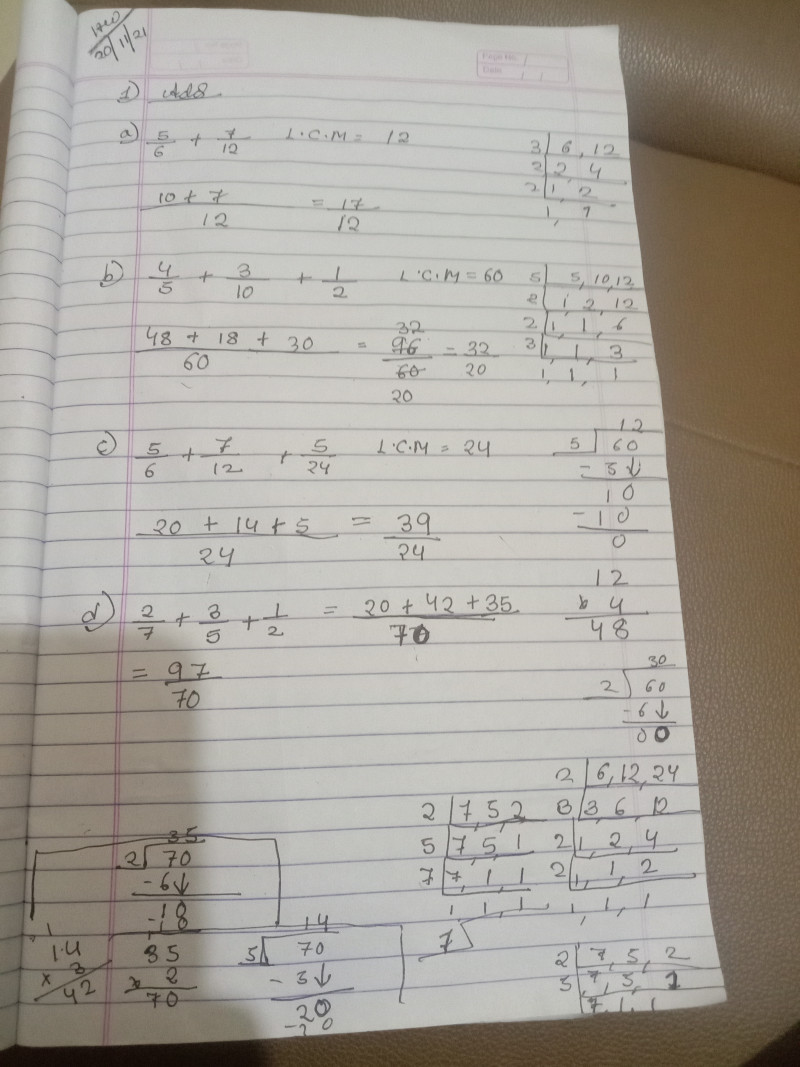 20/11/21
Page No.
Date
1) Add
a) 5/6 + 7/12 L.C.M = 12
10 + 7 / 12 = 17/12
3 | 6, 12
2 | 2, 4
2 | 1, 2
1, 1
b) 4/5 + 3/10 + 1/2 L.C.M = 60
48 + 18 + 30 / 60 = 96/60 = 32/20
32
20
5 | 5, 10, 12
2 | 1, 2, 12
2 | 1, 1, 6
3 | 1, 1, 3
1, 1, 1
c) 5/6 + 7/12 + 5/24 L.C.M = 24
20 + 14 + 5 / 24 = 39/24
12
5 ) 60
- 5↓
10
- 10
0
12
x 4
48
d) 2/7 + 3/5 + 1/2 = 20 + 42 + 35 / 70
= 97/70
30
2 ) 60
- 6↓
00
2 | 6, 12, 24
3 | 3, 6, 12
2 | 1, 2, 4
2 | 1, 1, 2
1, 1, 1
2 | 7, 5, 2
5 | 7, 5, 1
7 | 7, 1, 1
1, 1, 1
35
2 ) 70
- 6↓
10
14
x 3
42
35
x 2
70
14
5 ) 70
- 5↓
20
7
2 | 7, 5, 2
5 | 7, 5, 1
7, 1, 1